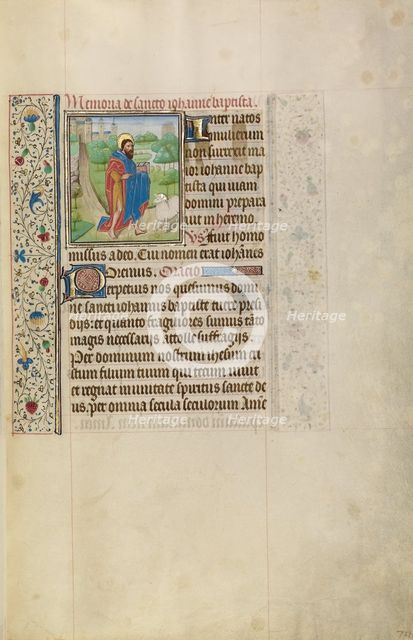 Memoria de sancto iohanne baptista.
Inter natos
mulierum
non surrexit ma
ior iohanne bap
tista qui uiam
domini prepara
uit in heremo.
Vs fuit homo
missus a deo. Cui nomen erat iohānes
Oremus. Oracio
Perpetuis nos quesumus domi
ne sancti iohannis baptiste tuere presi
dijs: et quanto fragiliores sumus tāto
magis necessarijs attolle suffragijs.
Per dominum nostrum ihesum cri
stum filium tuum qui tecum uiuit
et regnat in unitate spiritus sancte de
us. per omnia secula seculorum Amē
Heritage
Heritage
Heritage
Heritage
Heritage
Heritage